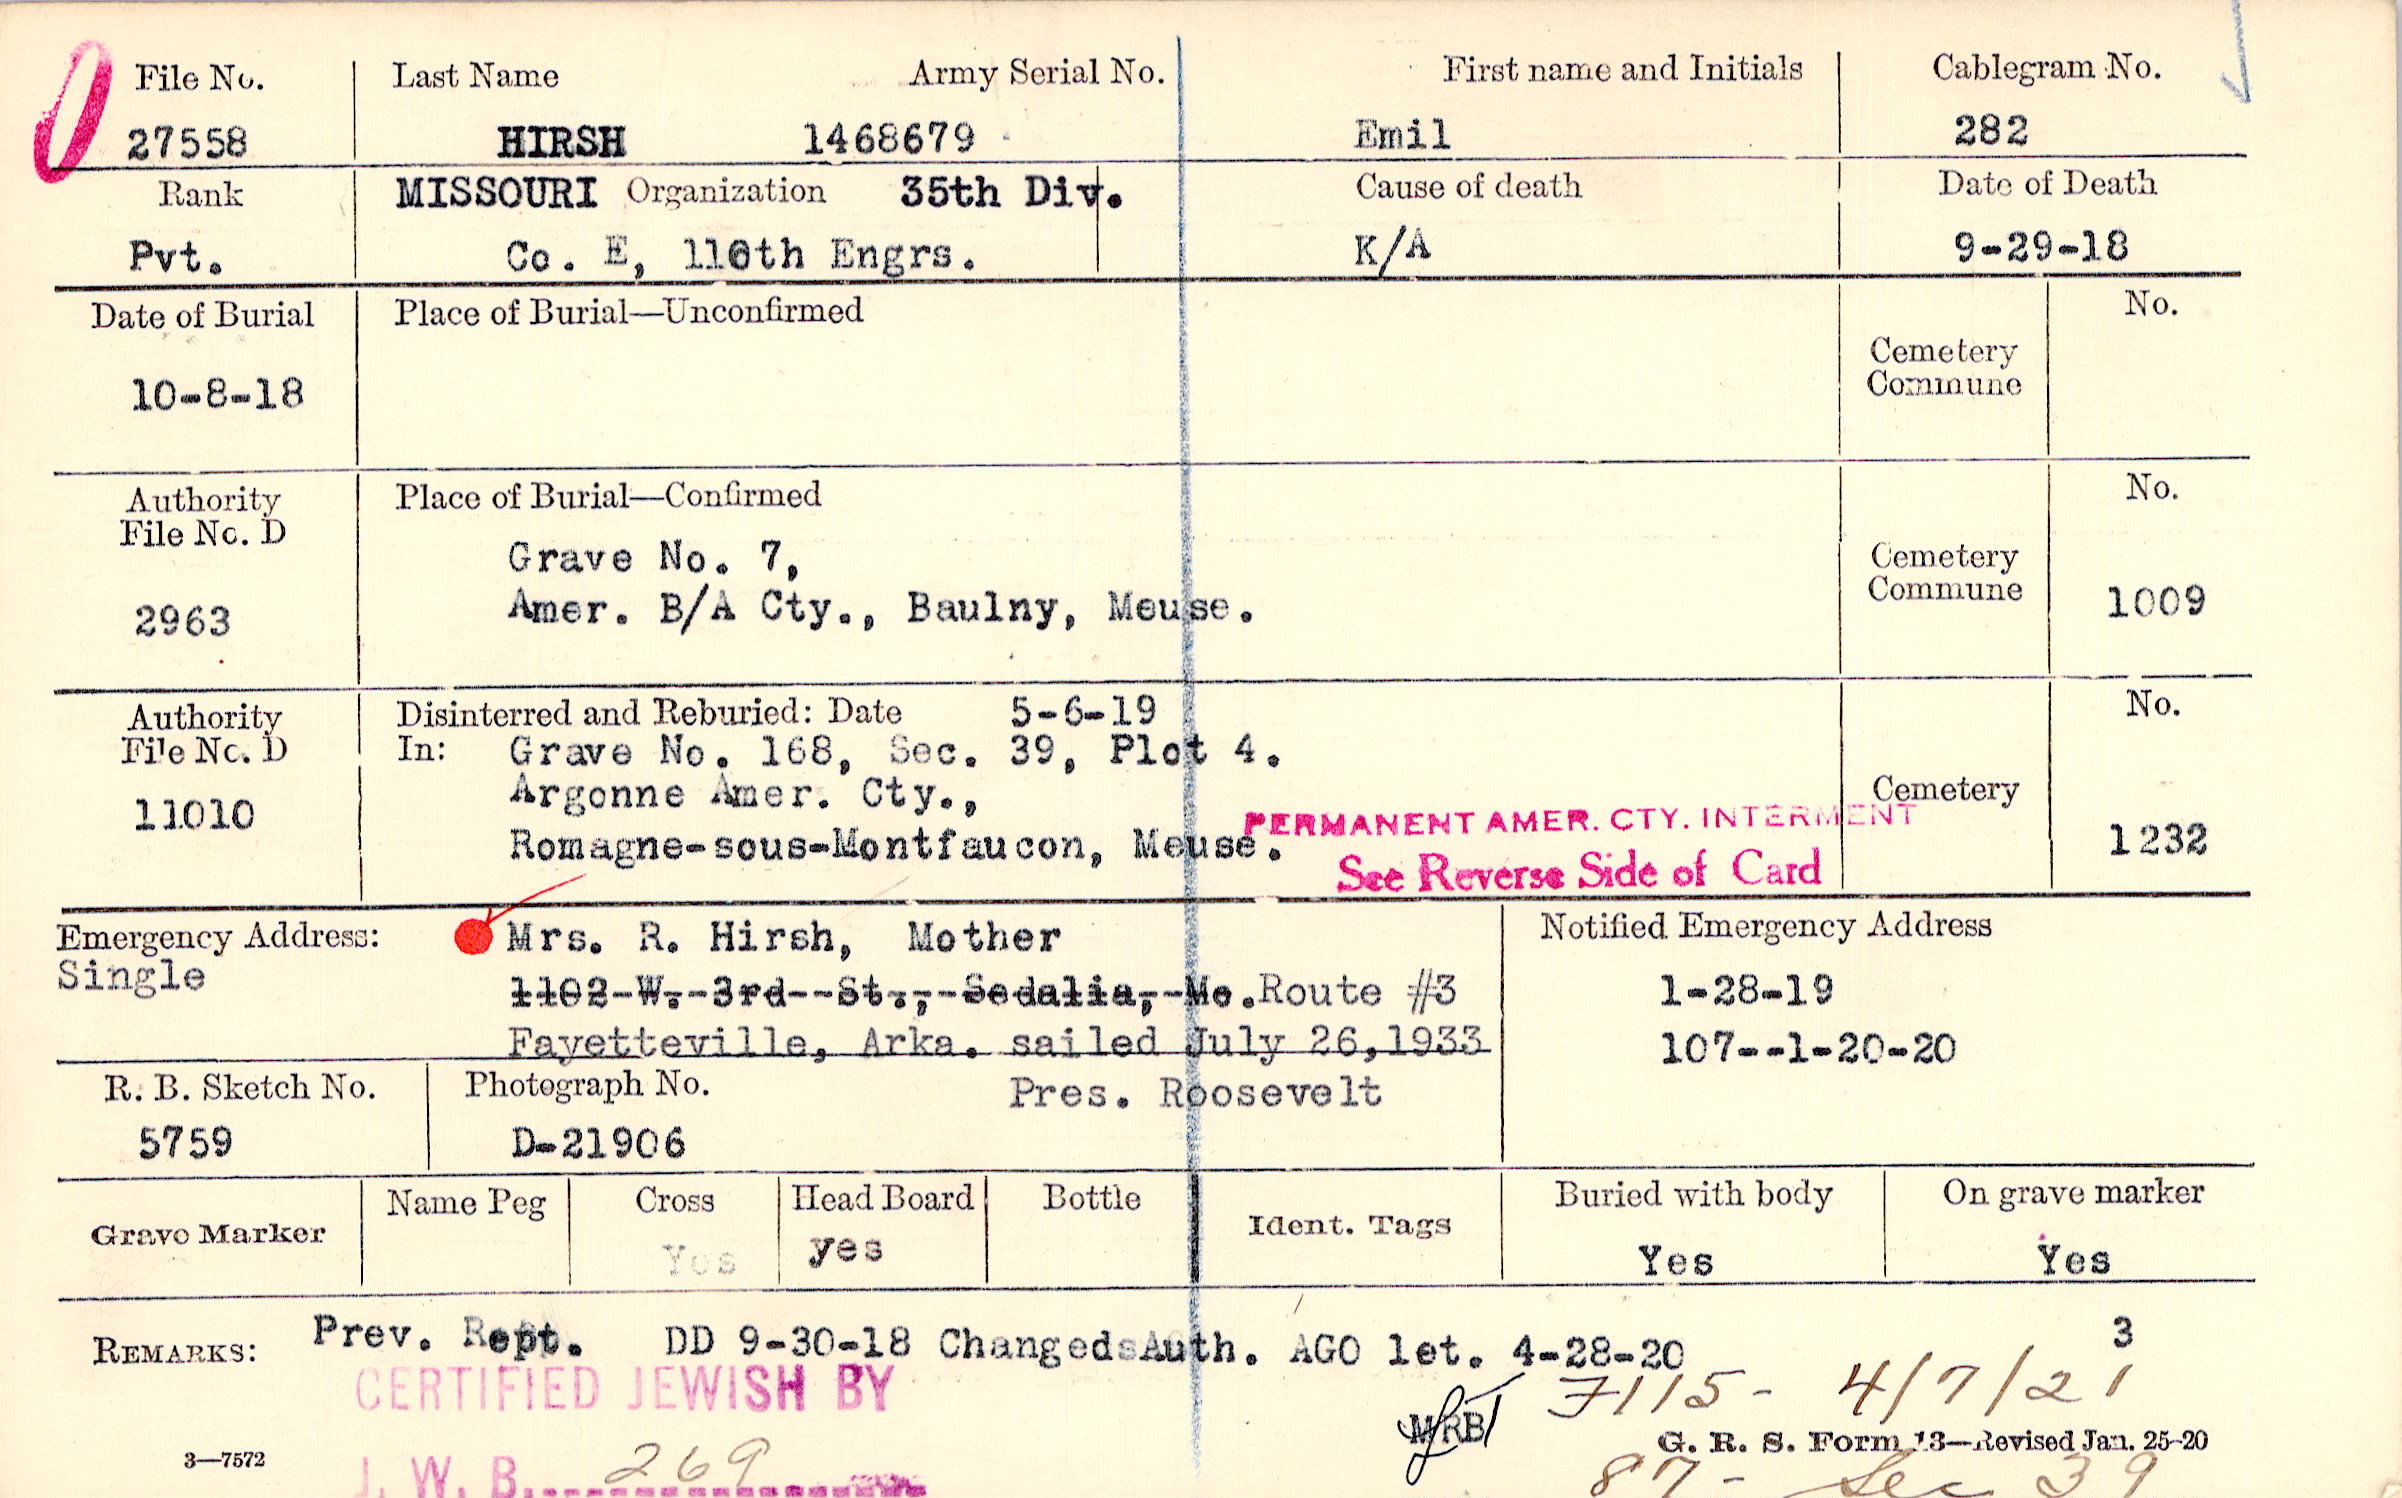 File No. Last Name Army Serial No. First name and Initials Cablegram No.
27558 HIRSH 1468679 Emil 282
Rank MISSOURI Organization 35th Div. Cause of death Date of Death
Pvt. Co. E, 110th Engrs. K/A 9-29-18
Date of Burial Place of Burial—Unconfirmed No.
Cemetery
Commune
10-8-18
Authority Place of Burial—Confirmed No.
File No. D
Grave No. 7, Cemetery
2963 Amer. B/A Cty., Baulny, Meuse. Commune 1009
Authority Disinterred and Reburied: Date 5-6-19 No.
File No. D In: Grave No. 168, Sec. 39, Plot 4.
11010 Argonne Amer. Cty., Cemetery
PERMANENT AMER. CTY. INTERMENT
Romagne-sous-Montfaucon, Meuse. 1232
See Reverse Side of Card
Emergency Address: Mrs. R. Hirsh, Mother Notified Emergency Address
Single 1102-W.-3rd--St.,-Sedalia,-Mo. Route #3 1-28-19
Fayetteville, Arka. sailed July 26,1933 107--1-20-20
R. B. Sketch No. Photograph No. Pres. Roosevelt
5759 D-21906
Grave Marker Name Peg Cross Head Board Bottle Ident. Tags Buried with body On grave marker
Yes yes Yes Yes
REMARKS: Prev. Rept. DD 9-30-18 Changed Auth. AGO let. 4-28-20 3
CERTIFIED JEWISH BY 7115- 4/7/21
MRB
3—7572 G. R. S. Form 13—Revised Jan. 25-20
J. W. B. 269 87- Sec 39